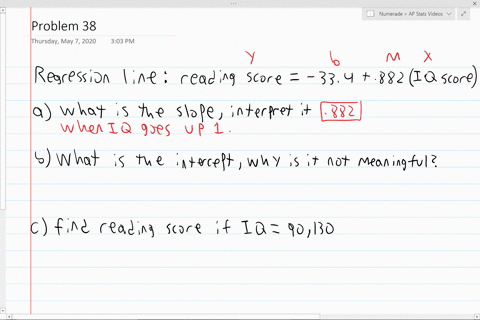 Numerade > AP Stats Videos
Problem 38
Thursday, May 7, 2020 3:03 PM
y b m x
Regression line: reading score = -33.4 + .882 (IQ score)
a) What is the slope, interpret it .882
when IQ goes up 1.
b) What is the intercept, why is it not meaningful?
c) find reading score if IQ = 90, 130